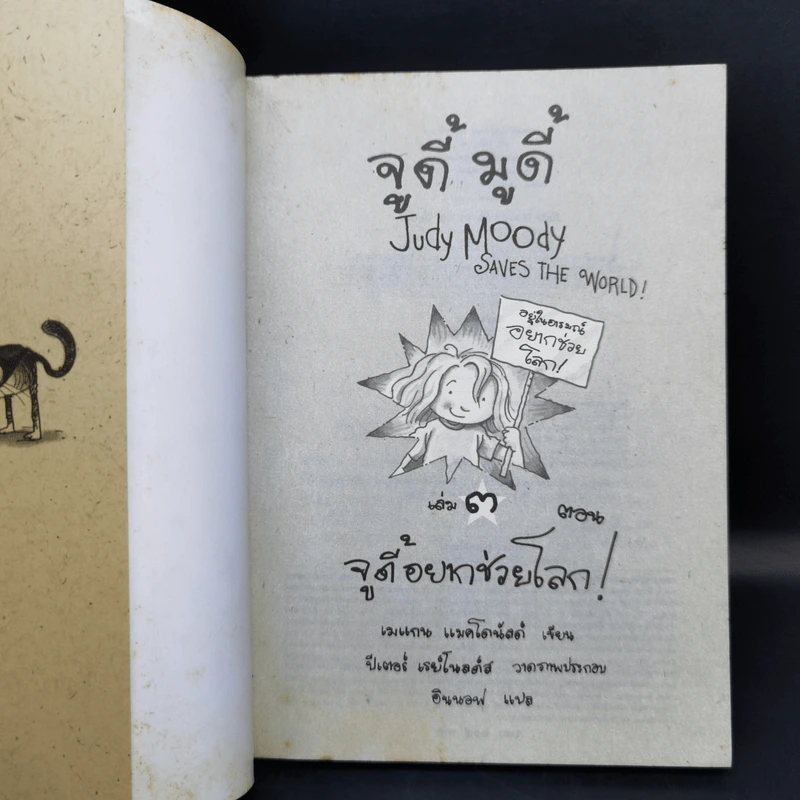 จูดี้ มูดี้
Judy Moody
SAVES THE WORLD!
อยู่ในอารมณ์
อยากช่วย
โลก!
เล่ม ๓ ตอน
จูดี้อยากช่วยโลก!
เมแกน แมคโดนัลด์ เขียน
ปีเตอร์ เรย์โนลด์ส วาดภาพประกอบ
อินนอฟ แปล